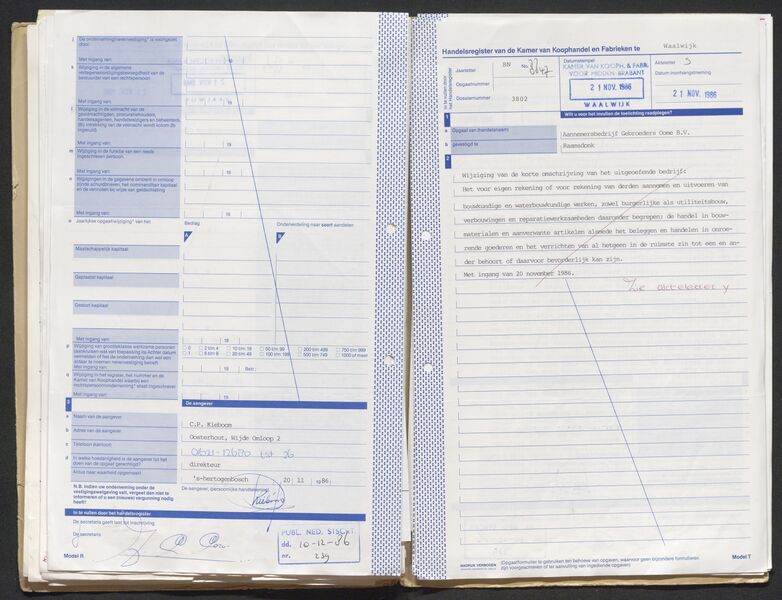 j De onderneming/nevenvestiging* is voortgezet door:
Met ingang van: 19
k Wijziging in de algemene vertegenwoordigingsbevoegdheid van de bestuurder van een rechtspersoon
Met ingang van: 19
l Wijziging in de volmacht van de gevolmachtigden, procuratiehouders, handelsagenten, handelsreizigers en beheerders (bij intrekking van de volmacht wordt kolom 2b ingevuld)
Met ingang van: 19
m Wijziging in de functie van een reeds ingeschreven persoon.
Met ingang van: 19
Met ingang van: 19
o Jaarlijkse opgaaf/wijziging* van het
Bedrag
Onderverdeling naar soort aandelen
A
B
Maatschappelijk kapitaal:
Geplaatst kapitaal:
Gestort kapitaal:
Met ingang van: 19
p Wijziging van grootteklasse werkzame personen
0 2 t/m 4 10 t/m 19 50 t/m 99 200 t/m 499 750 t/m 999
1 5 t/m 9 20 t/m 49 100 t/m 199 500 t/m 749 1000 of meer
Met ingang van: 19 Betr.:
q Wijziging in het register, het nummer en de Kamer van Koophandel waarbij een rechtspersoon/onderneming* staat ingeschreven
Met ingang van: 19
3 De aangever
a Naam van de aangever
C.P. Kieboom
b Adres van de aangever
Oosterhout, Wijde Omloop 2
c Telefoon (kantoor)
tst 26
d In welke hoedanigheid is de aangever tot het doen van de opgaaf gerechtigd?
direkteur
Aldus naar waarheid opgemaakt
's-hertogenbosch 20 11 1986
N.B. Indien uw onderneming onder de vestigingswetgeving valt, vergeet dan niet te informeren of u een (nieuwe) vergunning nodig heeft!
De aangever, (persoonlijke handtekening)
In te vullen door het handelsregister
De secretaris geeft last tot inschrijving
De secretaris
PUBL. NED. STSCRT.
dd. 10-12-86
nr. 239
Model R
Handelsregister van de Kamer van Koophandel en Fabrieken te Waalwijk
In te vullen door het Handelsregister
Jaarletter BN No. 3847
Opgaafnummer
Dossiernummer 3802
Datumstempel
KAMER VAN KOOPH. & FABR.
VOOR MIDDEN BRABANT
21 NOV. 1986
WAALWIJK
Akteletter S
21 NOV. 1986
1 Wilt u voor het invullen de toelichting raadplegen?
a Opgaaf van (handelsnaam)
Aannemersbedrijf Gebroeders Oome B.V.
b gevestigd te
Raamsdonk
2
Wijziging van de korte omschrijving van het uitgeoefende bedrijf:
Het voor eigen rekening of voor rekening van derden aannemen en uitvoeren van
bouwkundige en waterbouwkundige werken, zowel burgerlijke als utiliteitsbouw,
verbouwingen en reparatiewerkzaamheden daaronder begrepen; de handel in bouw-
materialen en aanverwante artikelen alsmede het beleggen en handelen in onroe-
rende goederen en het verrichten van al hetgeen in de ruimste zin tot een en an-
der behoort of daarvoor bevorderlijk kan zijn.
Met ingang van 20 november 1986.
Zie akteletter y
NADRUK VERBODEN
(Opgaafformulier te gebruiken ten behoeve van opgaven, waarvoor geen bijzondere formulieren zijn voorgeschreven of ter aanvulling van ingediende opgaven)
Model T